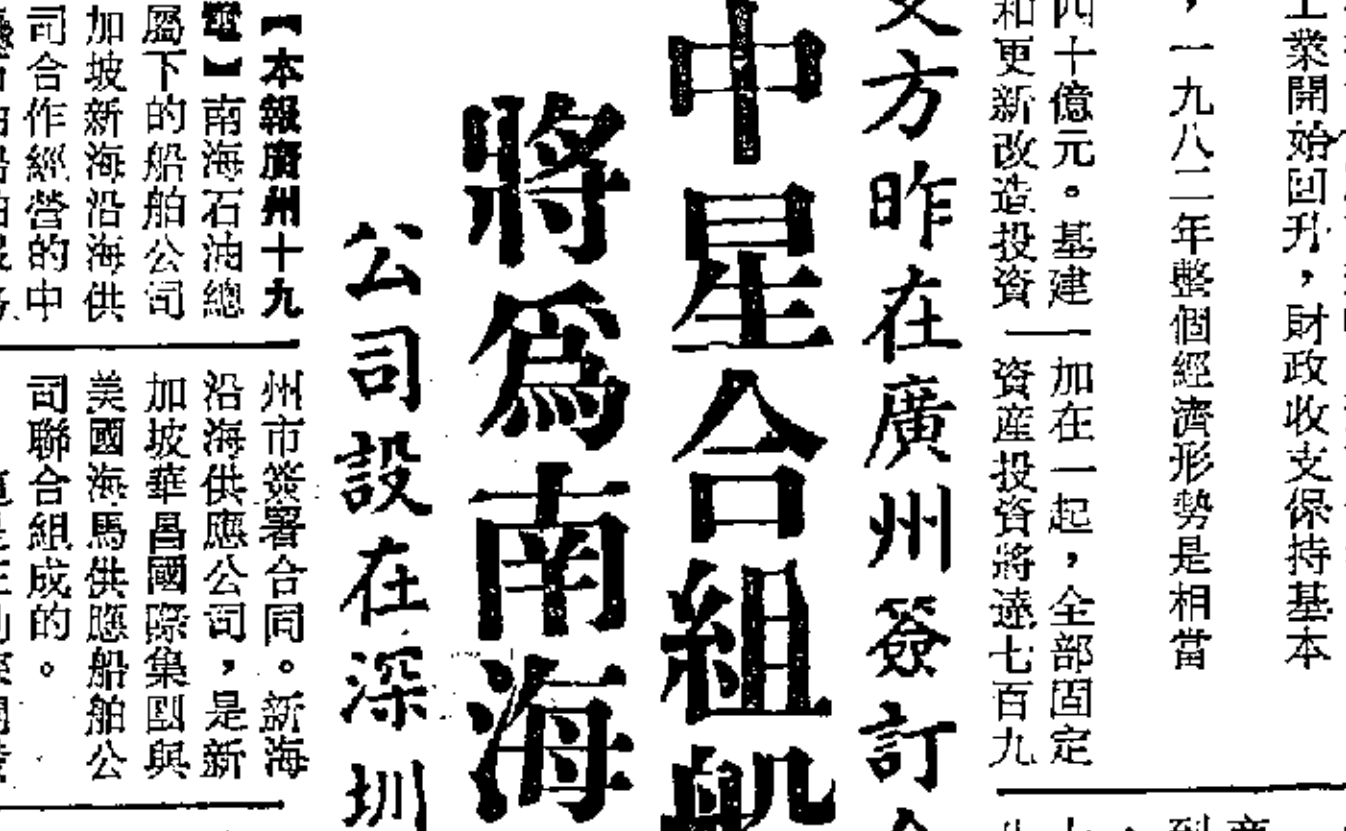 業開始回升，財政收支保持基本
，一九八二年整個經濟形勢是相當
四十億元。基建
和更新改造投資
加在一起，全部固定
資産投資將達七百九
方昨在廣州簽訂
中星合組船
將爲南海
公司設在深圳
【本報廣州十九
電】南海石油總
屬下的船舶公司
加坡新海沿海供
司合作經營的中
州市簽署合同。新海
沿海供應公司，是新
加坡華昌國際集團與
美國海馬供應船舶公
司聯合組成的。